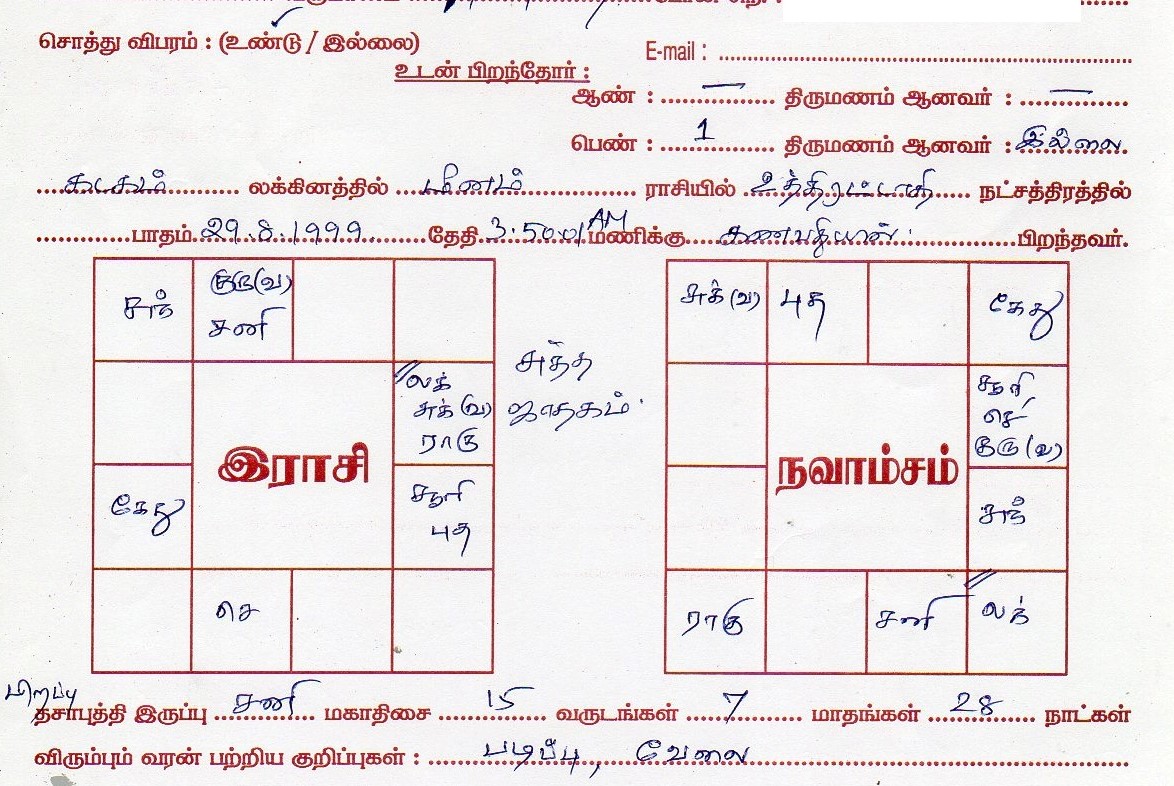 சொத்து விபரம் : (உண்டு / இல்லை)
E-mail : ........................
உடன் பிறந்தோர் :
ஆண் : ..... — ..... திருமணம் ஆனவர் : ..... — .....
பெண் : ..... 1 ..... திருமணம் ஆனவர் : இல்லை.
கடகம் லக்கினத்தில் மீனம் ராசியில் உத்திரட்டாதி நட்சத்திரத்தில்
............ பாதம் 29.8.1999 தேதி 3.50 AM மணிக்கு பிறந்தவர்.
சந்
குரு(வ)
சனி
லக்
சுக்(வ)
ராகு
சுத்த
ஜாதகம்.
இராசி
கேது
சூரி
புத
செ
சுக்(வ)
புத
கேது
சூரி
செ
குரு(வ)
நவாம்சம்
சந்
ராகு
சனி
லக்
பிறப்பு
தசாபுத்தி இருப்பு சனி மகாதிசை 15 வருடங்கள் 7 மாதங்கள் 28 நாட்கள்
விரும்பும் வரன் பற்றிய குறிப்புகள் : படிப்பு, வேலை